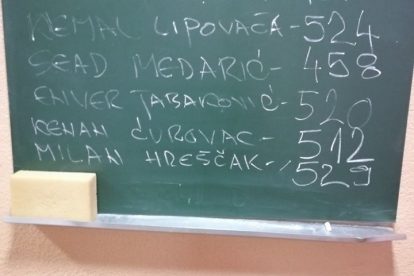 KEMAL LIPOVAČA - 524
SEAD MEDARIĆ - 458
ENVER TABAKOVIĆ - 520
KENAN ĆUROVAC - 512
MILAN HREŠČAK - 529